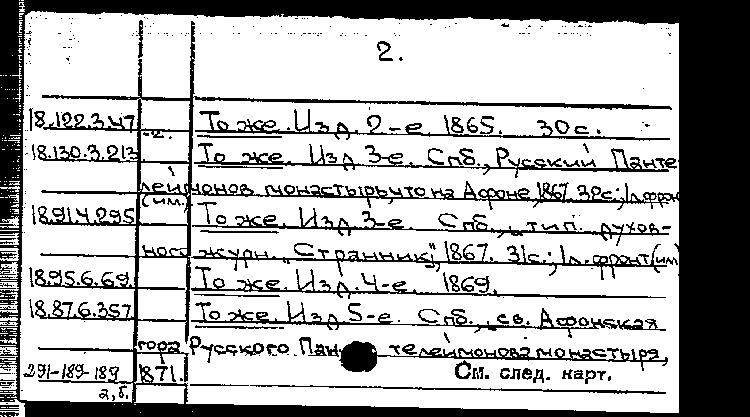 2.
18.122.3.47 То же. Изд. 2-е. 1865. 30 с.
18.130.3.213 -"- То же. Изд. 3-е. Спб., Русский Панте-
леймонов монастырь, что на Афоне, 1867. 32 с.; 1 л. фронт
(им.)
18.91.4.295 То же. Изд. 3-е. Спб., тип. духов-
ного журн. "Странник", 1867. 31 с.; 1 л. фронт. (им)
18.95.6.69. То же. Изд. 4-е. 1869.
18.87.6.357 То же. Изд 5-е. Спб., св. Афонская
гора Русского Пантелеймонова монастыря,
291-189-189 1871. См. след. карт.
2, б.